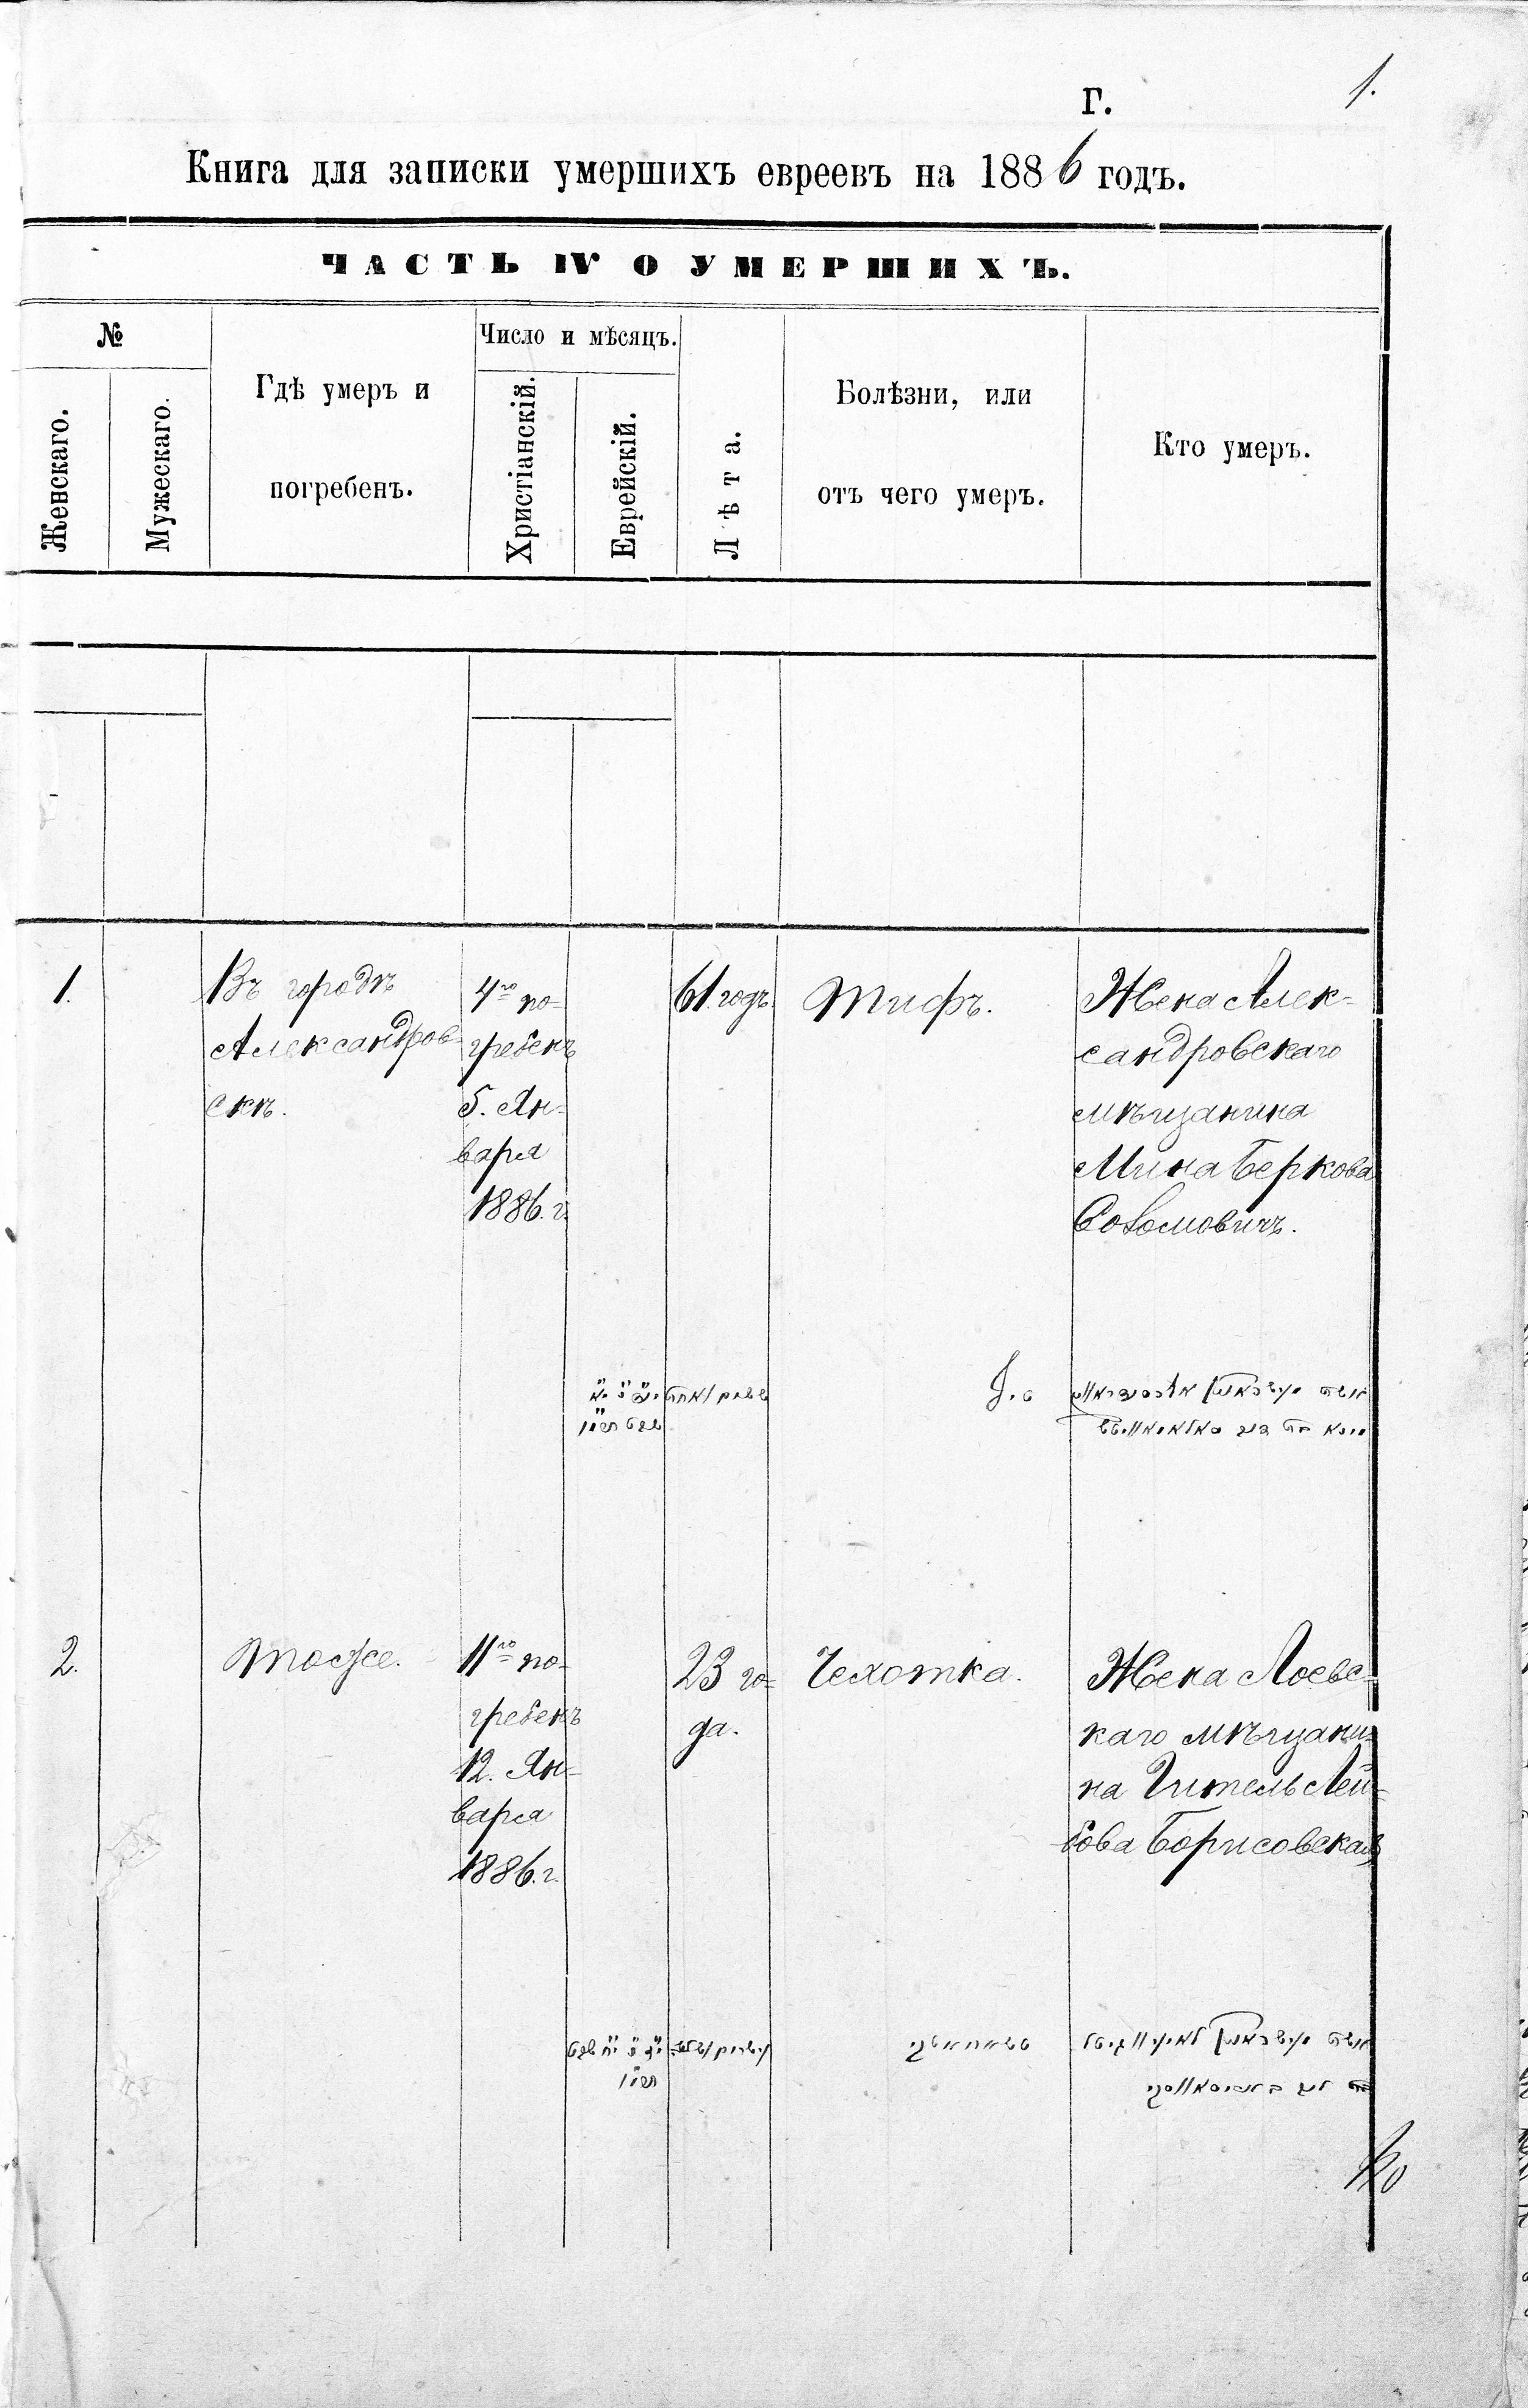 1.
Г.
Книга для записки умершихъ евреевъ на 1886 годъ.
ЧАСТЬ IV О УМЕРШИХЪ.
№
Женскаго.
Мужескаго.
Гдѣ умеръ и
погребенъ.
Число и мѣсяцъ.
Христіанскій.
Еврейскій.
Лѣта.
Болѣзни, или
отъ чего умеръ.
Кто умеръ.
1.
Въ городѣ
Александров-
скѣ.
4го по-
гребенъ
5. Ян-
варя
1886. г.
61. годъ.
Тифъ.
Жена Алек-
сандровскаго
мѣщанина
Мина Беркова
Соломовичъ.
2.
Тоже.
11го по-
гребенъ
12. Ян-
варя
1886. г.
23 го-
да.
Чехотка.
Жена Лоевс-
каго мѣщани-
на Гитель Лей-
бова Борисовская